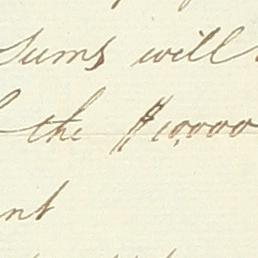 sums will
the $10,000
nt